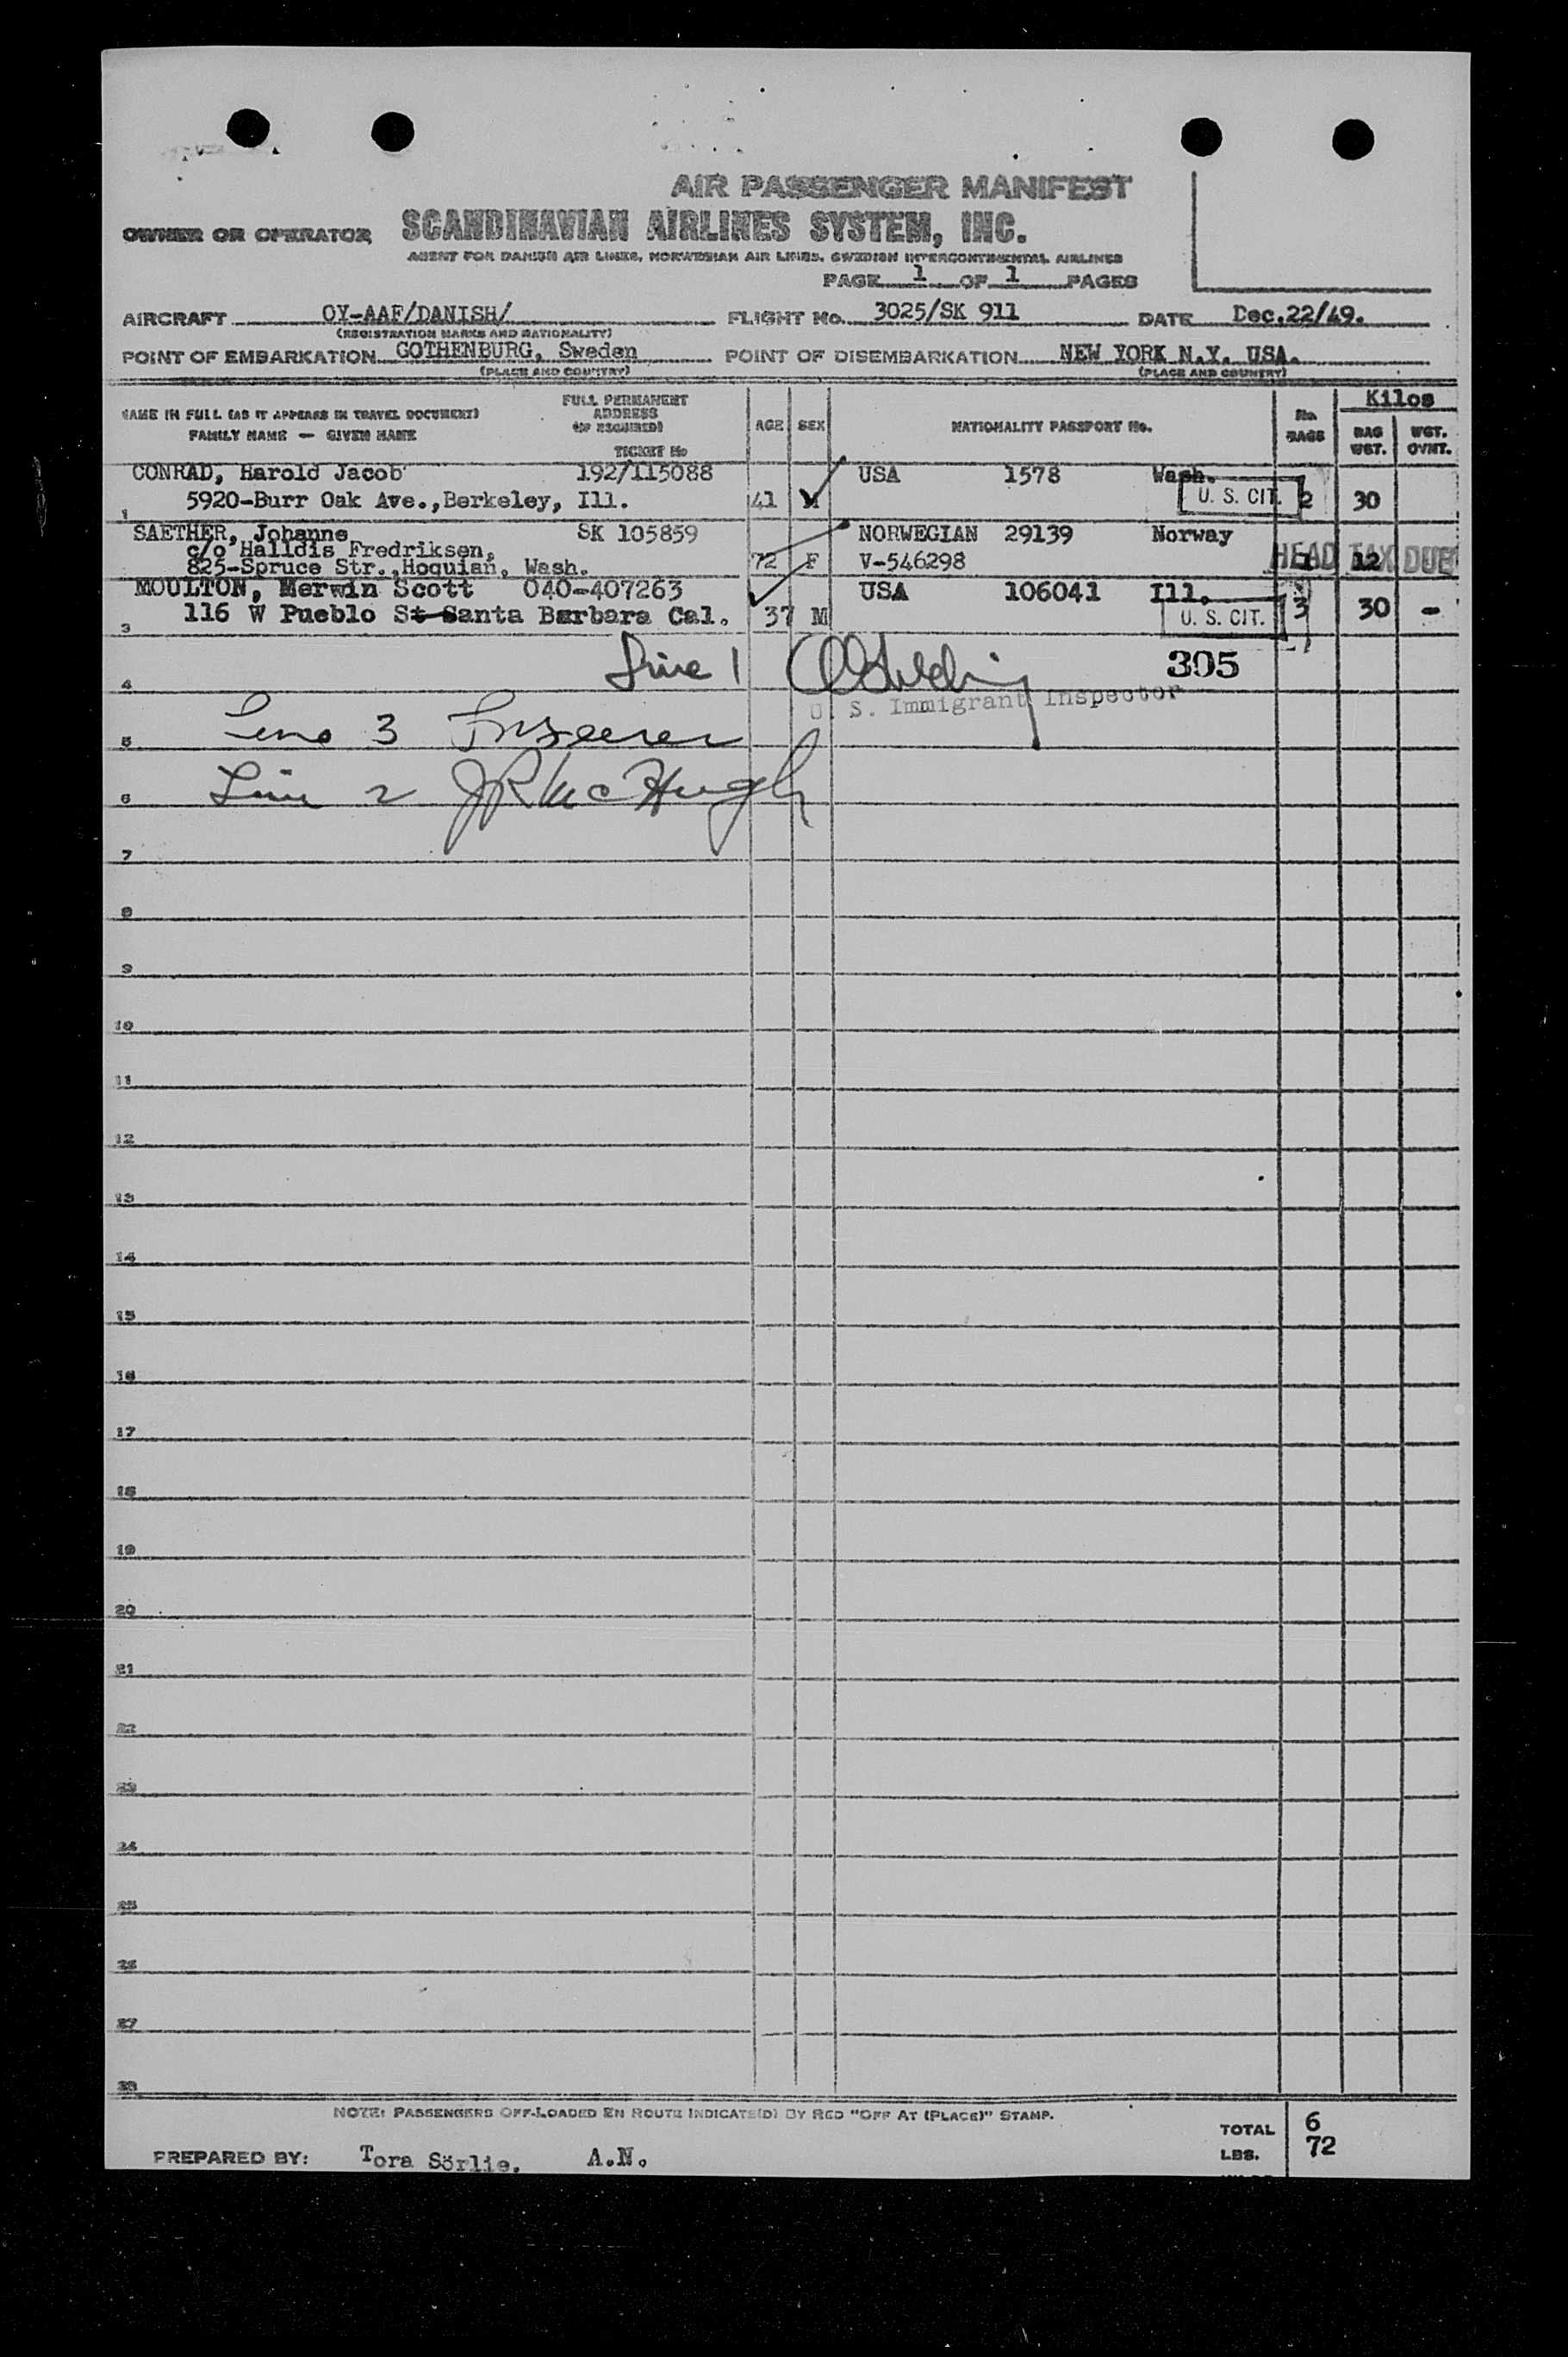 AIR PASSENGER MANIFEST
OWNER OR OPERATOR SCANDINAVIAN AIRLINES SYSTEM, INC.
AGENT FOR DANISH AIR LINES, NORWEGIAN AIR LINES, SWEDISH INTERCONTINENTAL AIRLINES
PAGE 1 OF 1 PAGES
AIRCRAFT OY-AAF/DANISH/ FLIGHT No. 3025/SK 911 DATE Dec.22/49.
(REGISTRATION MARKS AND NATIONALITY)
POINT OF EMBARKATION GOTHENBURG, Sweden POINT OF DISEMBARKATION NEW YORK N.Y. USA.
(PLACE AND COUNTRY) (PLACE AND COUNTRY)
NAME IN FULL (AS IT APPEARS IN TRAVEL DOCUMENT)
FAMILY NAME — GIVEN NAME
FULL PERMANENT
ADDRESS
(IF REQUIRED)
TICKET No
AGE SEX NATIONALITY PASSPORT No. No. BAGS Kilos
BAG WGT. WGT. OVWT.
CONRAD, Harold Jacob 192/115088 USA 1578 Wash.
1 5920-Burr Oak Ave.,Berkeley, Ill. 41 M U. S. CIT. 2 30
SAETHER, Johanne SK 105859 NORWEGIAN 29139 Norway
c/o Halldis Fredriksen,
825-Spruce Str.,Hoquian, Wash. 72 F V-546298 1 12 HEAD TAX DUE
MOULTON, Merwin Scott 040-407263 USA 106041 Ill.
3 116 W Pueblo St Santa Barbara Cal. 37 M U. S. CIT. 3 30 -
Line 1 305
4 U. S. Immigrant Inspector
5 Line 3
6 Line 2 JR McHugh
7
8
9
10
11
12
13
14
15
16
17
18
19
20
21
22
23
24
25
26
27
28
NOTE: PASSENGERS OFF-LOADED EN ROUTE INDICATE(D) BY RED "OFF AT (PLACE)" STAMP.
TOTAL 6
PREPARED BY: Tora Sörlie. A.N. LBS. 72